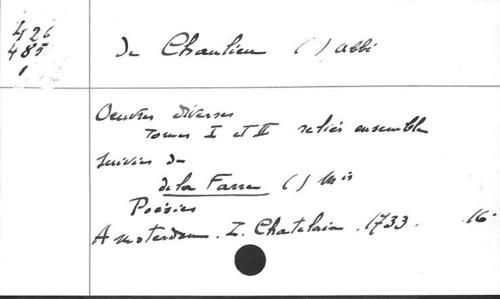 426
485
1
de Chaulieu ( ) abbé
Oeuvres diverses
Tomes I et II reliés ensemble
suivies de
de la Farre ( ) Mis
Poésies
Amsterdam. Z. Chatelain. 1733. 16°